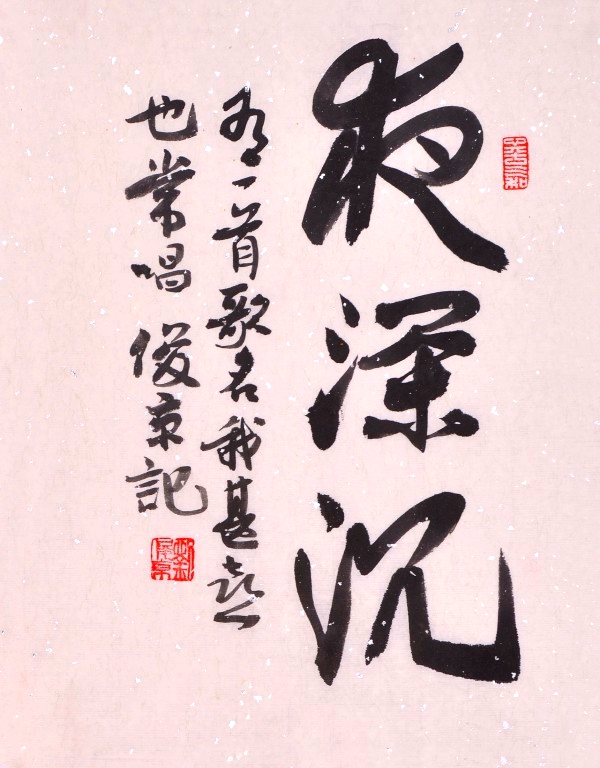 夜深沉
为一首歌名我甚喜
也常唱 俊京記
劉俊京